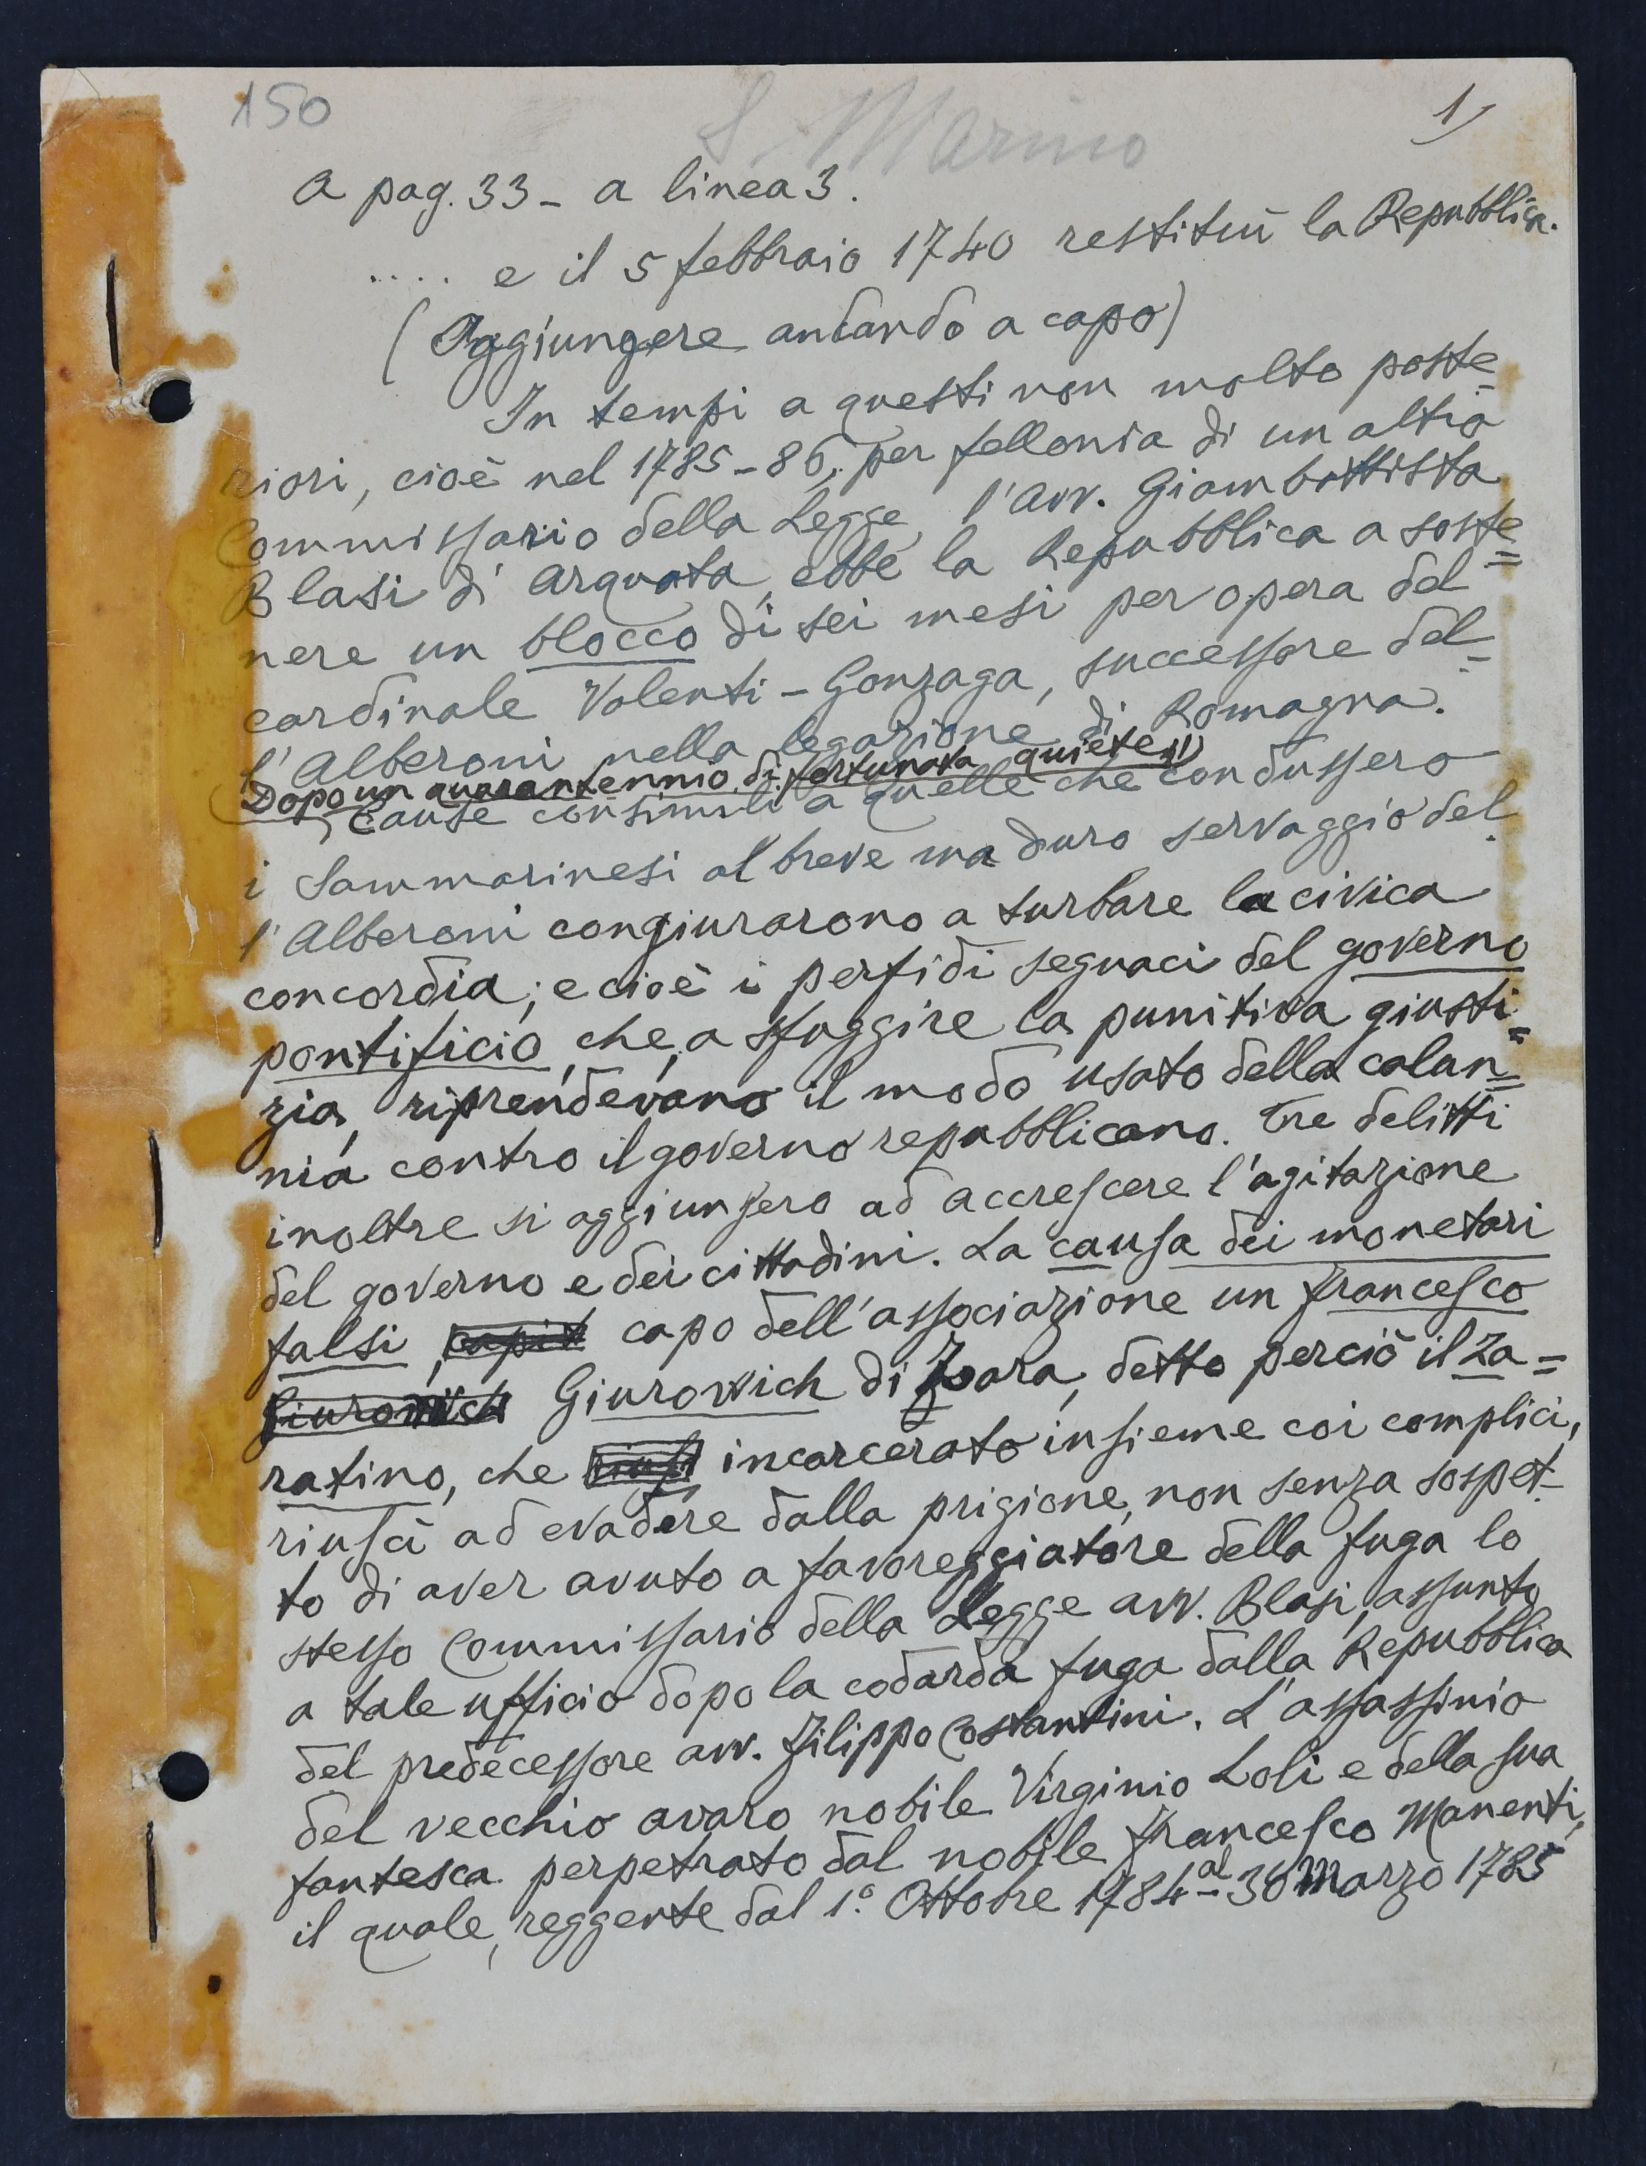 150
S. Marino
1)
A pag. 33 - a linea 3.
..... e il 5 febbraio 1740 restituì la Repubblica.
(Aggiungere andando a capo)
In tempi a questi non molto poste=
riori, cioè nel 1785-86, per fellonia di un altro
Commissario della Legge, l'Avv. Giambattista
Blasi d'Arquata, ebbe la Repubblica a soste=
nere un blocco di sei mesi per opera del
cardinale Valenti-Gonzaga, successore del=
l'Alberoni nella legazione di Romagna.
Dopo un quarantennio di fortunata quiete
Cause consimili a quelle che condussero
i Sammarinesi al breve ma duro servaggio del=
l'Alberoni congiurarono a turbare la civica
concordia; e cioè i perfidi seguaci del governo
pontificio, che, a sfuggire la punitiva giusti=
zia, riprendevano il modo usato della calun=
nia contro il governo repubblicano. Tre delitti
inoltre si aggiunsero ad accrescere l'agitazione
del governo e dei cittadini. La causa dei monetari
falsi, capo dell'associazione un Francesco
Giurovich Giurovich di Zara, detto perciò il Za=
ratino, che incarcerato insieme coi complici,
riuscì ad evadere dalla prigione, non senza sospet-
to di aver avuto a favoreggiatore della fuga lo
stesso Commissario della Legge avv. Blasi, assunto
a tale ufficio dopo la codarda fuga dalla Repubblica
del predecessore avv. Filippo Costantini. L'assassinio
del vecchio avaro nobile Virginio Loli e della sua
fantesca perpetrato dal nobile Francesco Manenti,
il quale, reggente dal 1.° Ottobre 1784 al 30 Marzo 1785